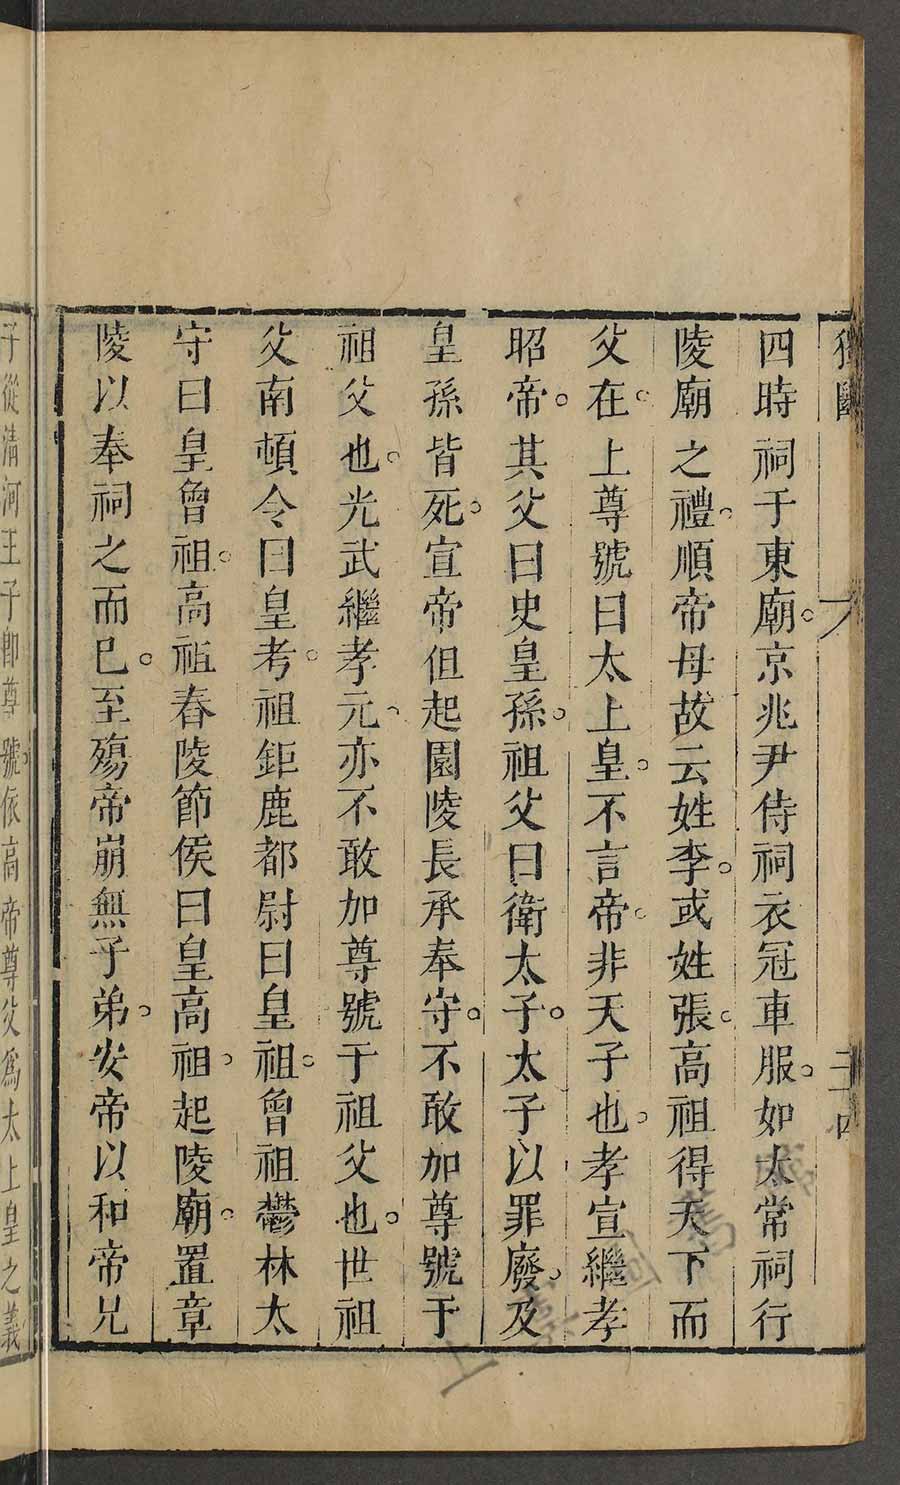 獨斷
二十四
四時祠于東廟。京兆尹侍祠衣冠車服。如太常祠行
陵廟之禮。順帝母故云姓李。或姓張。高祖得天下而
父在。上尊號曰太上皇。不言帝。非天子也。孝宣繼孝
昭帝。其父曰史皇孫。祖父曰衛太子。太子以罪廢。及
皇孫皆死。宣帝但起園陵長承奉守。不敢加尊號于
祖父也。光武繼孝元。亦不敢加尊號于祖父也。世祖
父南頓令曰皇考。祖鉅鹿都尉曰皇祖。曾祖鬱林太
守曰皇曾祖。高祖舂陵節侯曰皇高祖。起陵廟。置章
陵以奉祠之而已。至殤帝崩無子弟。安帝以和帝兄
子從清河王子即尊號。依高帝尊父爲太上皇之義
上